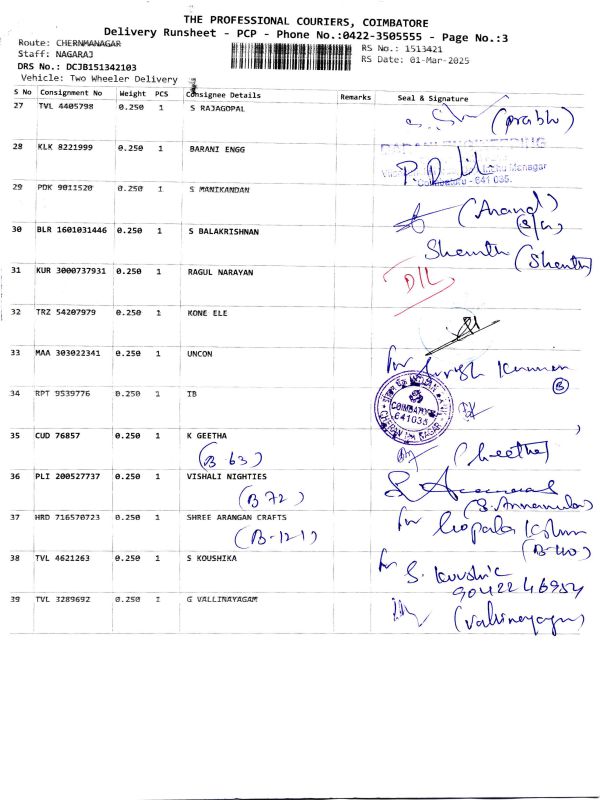 THE PROFESSIONAL COURIERS, COIMBATORE
Delivery Runsheet - PCP - Phone No.:0422-3505555 - Page No.:3
Route: CHERNMANAGAR
RS No.: 1513421
Staff: NAGARAJ
RS Date: 01-Mar-2025
DRS No.: DCJB151342103
Vehicle: Two Wheeler Delivery
S No Consignment No Weight PCS Consignee Details Remarks Seal & Signature
27 TVL 4405798 0.250 1 S RAJAGOPAL
(prabhu)
28 KLK 8221999 0.250 1 BARANI ENGG
BARANI ENGINEERING
Manager
Coimbatore - 641 035.
29 PDK 9011520 0.250 1 S MANIKANDAN
(Anand)
30 BLR 1601031446 0.250 1 S BALAKRISHNAN
31 KUR 3000737931 0.250 1 RAGUL NARAYAN
D/L
32 TRZ 54207979 0.250 1 KONE ELE
33 MAA 303022341 0.250 1 UNCON
for
34 RPT 9539776 0.250 1 TB
COIMBATORE
641035
35 CUD 76857 0.250 1 K GEETHA
(B 63)
(Geetha)
36 PLI 200527737 0.250 1 VISHALI NIGHTIES
(B 72)
37 HRD 716570723 0.250 1 SHREE ARANGAN CRAFTS
(B-121)
for
(B-40)
38 TVL 4621263 0.250 1 S KOUSHIKA
for S.
9042246954
39 TVL 3289692 0.250 1 G VALLINAYAGAM
(Vallinayagam)